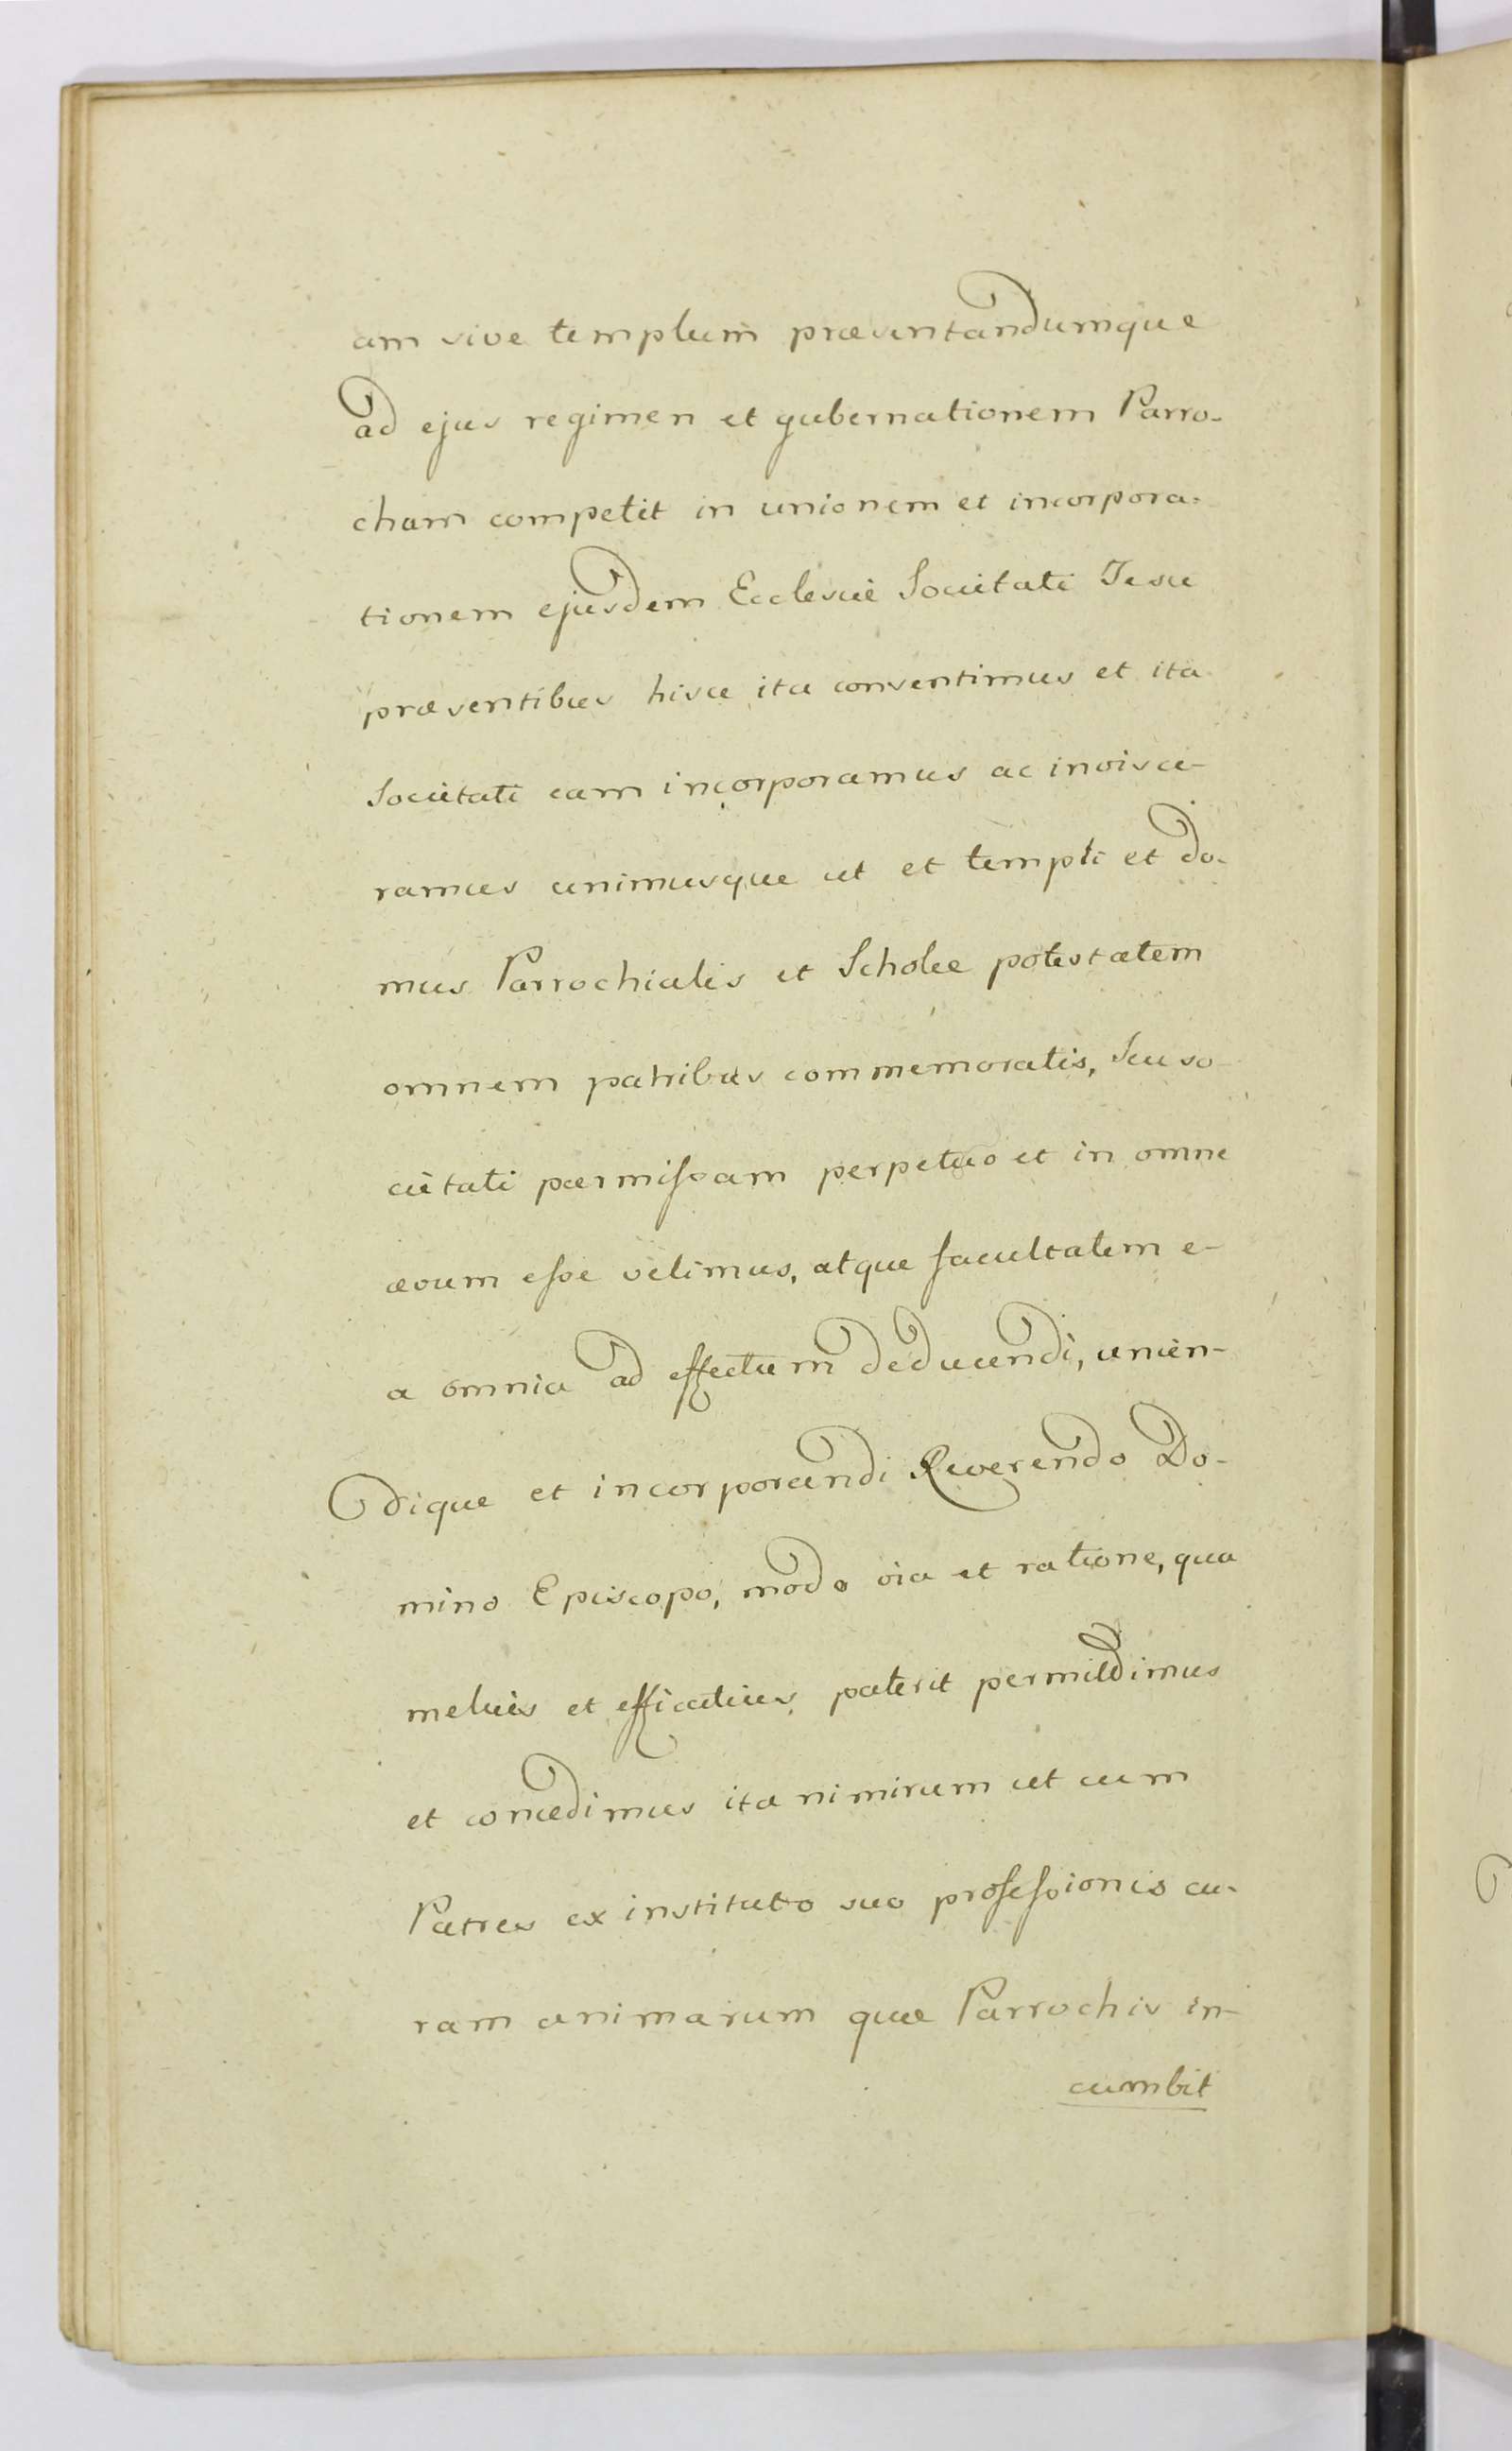 am sive templum præsentandumque
ad ejus regimen et gubernationem Parro-
cham competit in unionem et incorpora-
tionem ejusdem Ecclesiè Societati Jesu
præsentibus hisce ita consentimus et ita
Societati eam incorporamus ac invisce-
ramus unimusque ut et templi et do-
mus Parrochialis et Scholæ potestatem
omnem patribus commemoratis, seu so-
cietati permissam perpetuo et in omne
ævum esse velimus, atque facultatem e-
a omnia ad effectum deducendi, unien-
dique et incorporandi Reverendo Do-
mino Episcopo, modo via et ratione, qua
melius et efficatius paterit permittimus
et concedimus ita nimirum ut cum
Patres ex instituto suo professionis cu-
ram animarum quæ Parrochis in-
cumbit